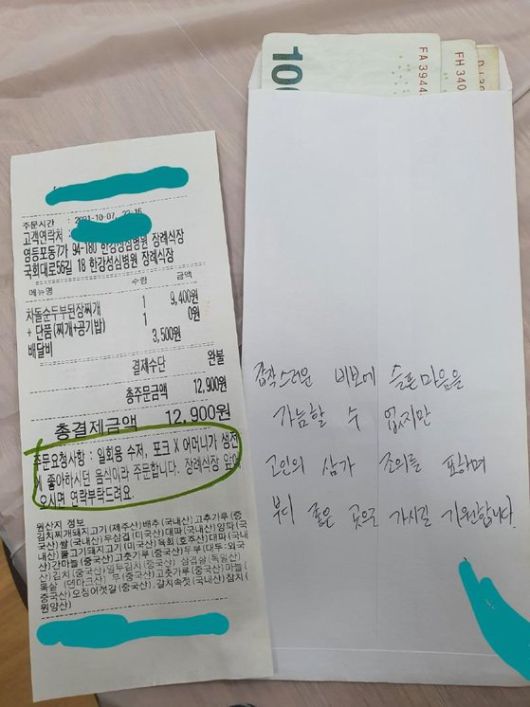 주문시간 : 2021-10-07, 22:16
고객연락처 :
영등포동7가 94-180 한강성심병원 장례식장
국회대로56길 18 한강성심병원 장례식장
메뉴명 수량 금액
차돌순두부된장찌개 1 9,400원
+ 단품(찌개+공기밥) 1 0원
배달비 3,500원
결제수단 완불
총주문금액 12,900원
총결제금액 12,900원
주문요청사항 : 일회용 수저, 포크 X 어머니가 생전
에 좋아하시던 음식이라 주문합니다. 장례식장 앞에
오시면 연락부탁드려요.
원산지 정보
김치찌개돼지고기(제주산) 배추(국내산) 고추가루(중
국산) 쌀(국내산) 우삼겹(미국산) 대파(국내산) 양파(국
내산) 불고기돼지고기(미국산) 육회(호주산) 대파(국내
산) 간마늘(중국산) 고춧가루(중국산) 두부(대두:외국
산) 김치(중국산) 삼겹살(독일산)
목살(덴마크산) 무(중국산) 고춧가루(중국산) 마늘(
중국산) 오징어젓갈(중국산) 갈치속젓(국내산) 참치(
원양산)
100
FA3944
FH340
갑작스러운 비보에 슬픈 마음을
가늠할 수 없지만
고인의 삼가 조의를 표하며
부디 좋은 곳으로 가시길 기원합니다.